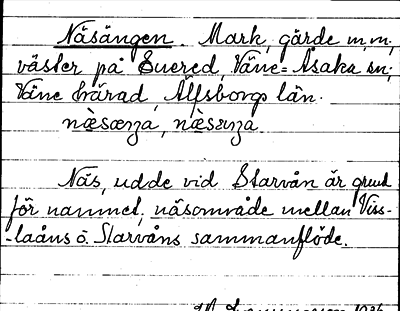 Näsängen. Mark, gärde m.m.,
väster på Suered, Väne-Åsaka sn;
Väne härad, Älfsborgs län.
næ̀sæŋa, næ̀sɛŋa
Näs, udde vid Starvån är grund
för namnet, näsområde mellan Viss-
-laåns o. Slarvåns sammanflöde.
1936